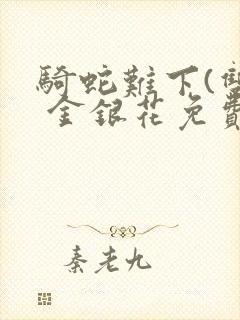 騎蛇難下(雙
金銀花免費
秦老九